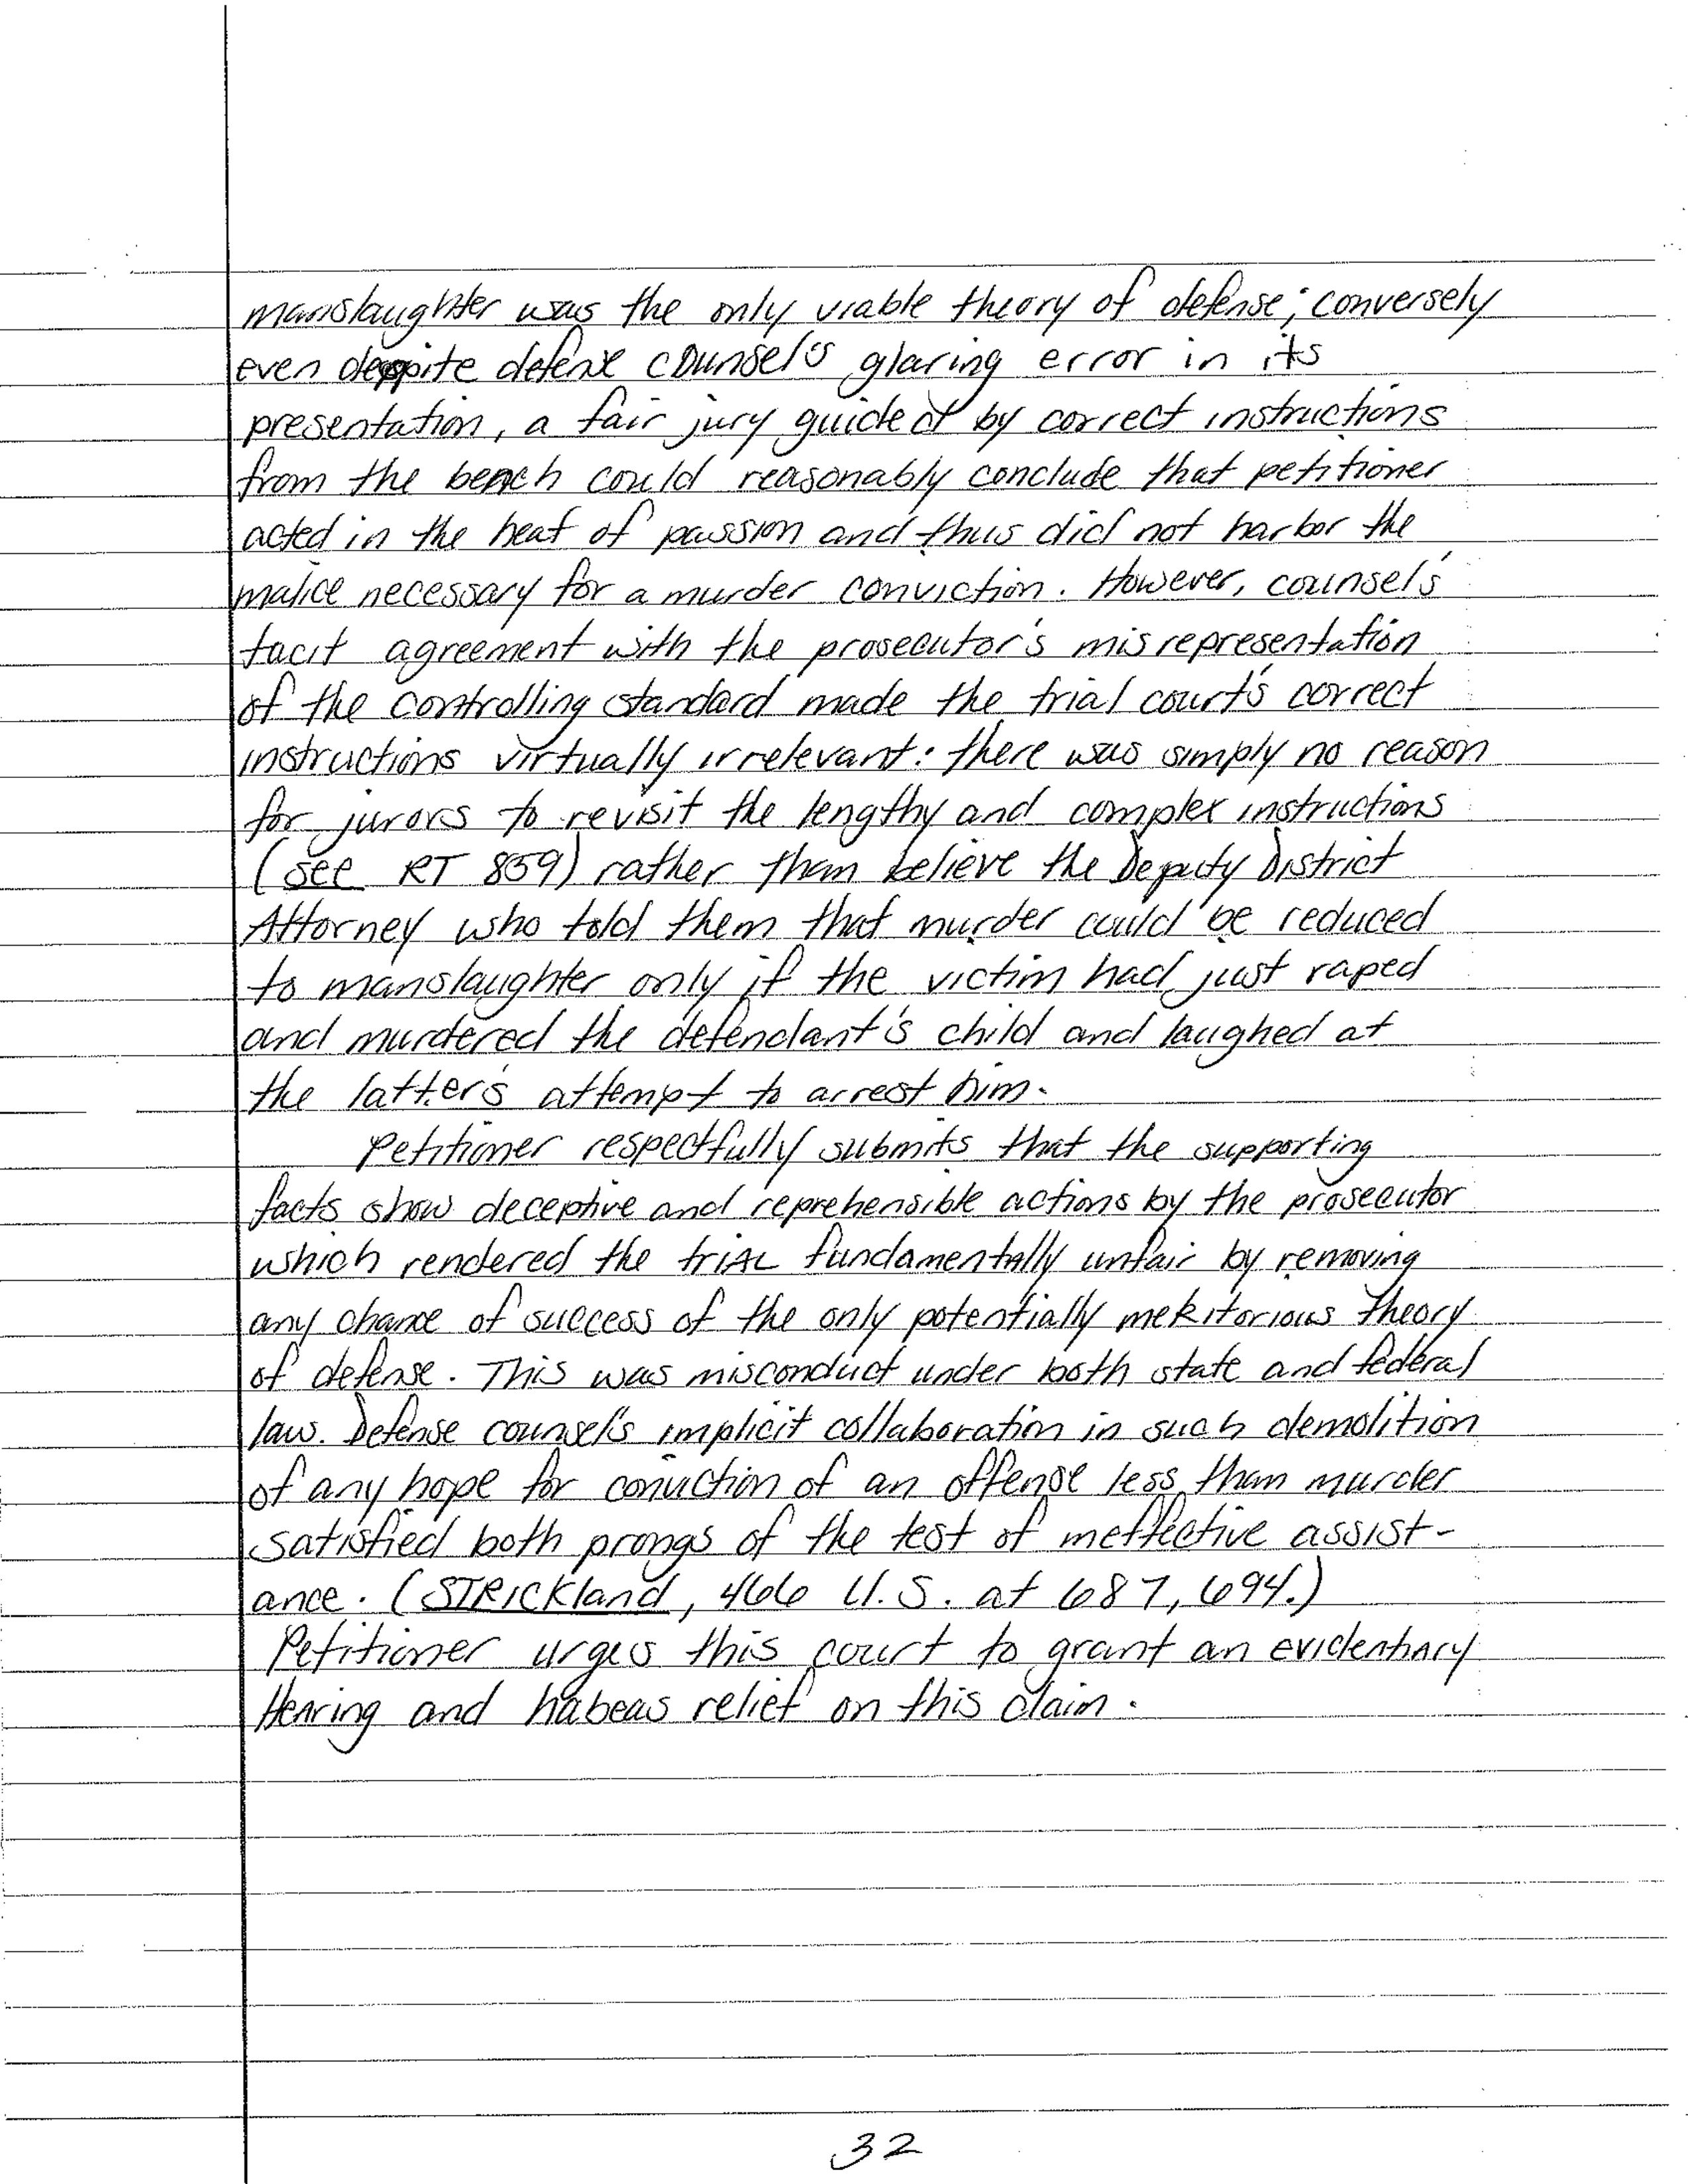 manslaughter was the only viable theory of defense; conversely
even despite defense counsel's glaring error in its
presentation, a fair jury guided by correct instructions
from the bench could reasonably conclude that petitioner
acted in the heat of passion and thus did not harbor the
malice necessary for a murder conviction. However, counsel's
tacit agreement with the prosecutor's misrepresentation
of the controlling standard made the trial court's correct
instructions virtually irrelevant: there was simply no reason
for jurors to revisit the lengthy and complex instructions
(see RT 859) rather than believe the Deputy District
Attorney who told them that murder could be reduced
to manslaughter only if the victim had just raped
and murdered the defendant's child and laughed at
the latter's attempt to arrest him.
Petitioner respectfully submits that the supporting
facts show deceptive and reprehensible actions by the prosecutor
which rendered the triAL fundamentally unfair by removing
any chance of success of the only potentially meritorious theory
of defense. This was misconduct under both state and federal
law. Defense counsel's implicit collaboration in such demolition
of any hope for conviction of an offense less than murder
satisfied both prongs of the test of ineffective assist-
ance. (STRickland, 466 U.S. at 687, 694.)
Petitioner urges this court to grant an evidentiary
Hearing and habeas relief on this claim.
32